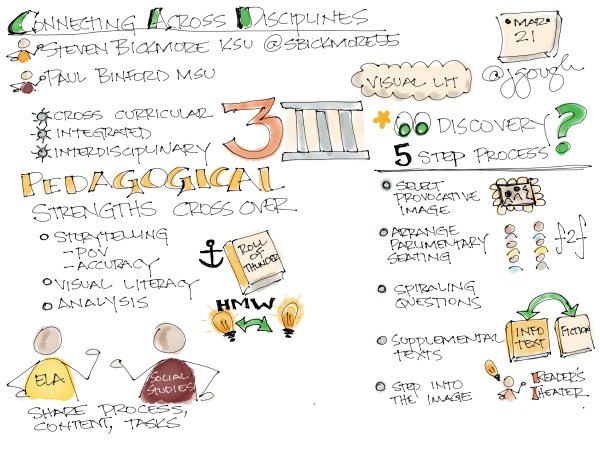 CONNECTING ACROSS DISCIPLINES
STEVEN BICKMORE KSU @SBICKMORE55
PAUL BINFORD MSU
MAR
21
VISUAL LIT
@jgough
CROSS CURRICULAR
INTEGRATED
INTERDISCIPLINARY
3 III
PEDAGOGICAL
STRENGTHS CROSS OVER
STORYTELLING
- POV
- ACCURACY
VISUAL LITERACY
ANALYSIS
ROLL
OF
THUNDER
HMW
ELA
SOCIAL
STUDIES
SHARE PROCESS,
CONTENT, TASKS
DISCOVERY ?
5 STEP PROCESS
SELECT
PROVOCATIVE
IMAGE
ARRANGE
PARLIMENTARY
SEATING
f2f
SPIRALING
QUESTIONS
SUPPLEMENTAL
TEXTS
INFO
TEXT
FICTION
STEP INTO
THE IMAGE
READER'S
THEATER